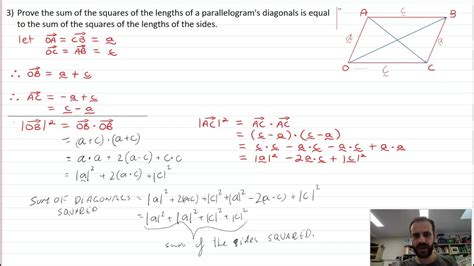 3) Prove the sum of the squares of the lengths of a parallelogram's diagonals is equal
to the sum of the squares of the lengths of the sides.
let OA = CB = a
OC = AB = c
∴ OB = a + c
∴ AC = -a + c
= c - a
|OB|² = OB · OB
= (a+c)·(a+c)
= a·a + 2(a·c) + c·c
= |a|² + 2(a·c) + |c|²
|AC|² = AC · AC
= (c - a)·(c - a)
= c·c - a·c - a·c + a·a
= |a|² - 2a·c + |c|²
SUM OF DIAGONALS SQUARED = |a|² + 2(a·c) + |c|² + |a|² - 2(a·c) + |c|²
= |a|² + |a|² + |c|² + |c|²
sum of the sides SQUARED.
A
c
B
a
a
O
c
C